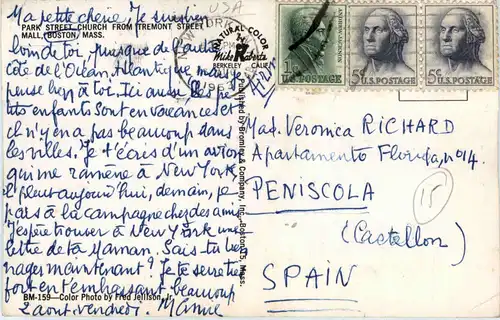 Ma petite chérie, Je suis bien
PARK STREET CHURCH FROM TREMONT STREET
MALL, BOSTON, MASS.
loin de toi, presque de l'autre
côté de l'Océan Atlantique mais je
pense bcp à toi. Ici aussi les pe
tits enfants sont en vacances et
il n'y en a pas beaucoup dans
les villes. Je t'écris d'un avion
qui me ramène à New York,
il pleut aujourd'hui, demain, je
pars à la campagne chez des amis
J'espère trouver à New York une
lettre de ta Maman. Sais-tu bien
nager maintenant? Je te serre très
fort en t'embrassant beaucoup
BM-159—Color Photo by Fred Jellison, Jr.
2 aout. vendredi. Mamie
USA
NATURAL COLOR
Mike Roberts
BERKELEY CALIF.
Published by Bromley & Company, Inc., Boston 5, Mass.
ANDREW JACKSON
1¢ U.S. POSTAGE
5¢ U.S. POSTAGE
5¢ U.S. POSTAGE
Mad. Veronica RICHARD
Apartamento Florida, nº 14.
PENISCOLA
15
(Castellon)
SPAIN